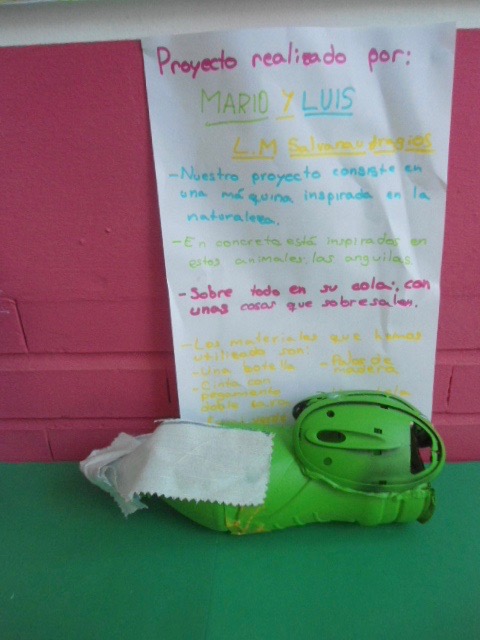 Proyecto realizado por:
MARIO Y LUIS
L.M Salvanaufragios
- Nuestro proyecto consiste en
una máquina inspirada en la
naturaleza.
- En concreto está inspirados en
estos animales, las anguilas
- Sobre todo en su cola, con
unas cosas que sobresalen.
- Los materiales que hemos
utilizado son:
- Una botella - Palos de
madera
- Cinta con
pegamento
doble cara